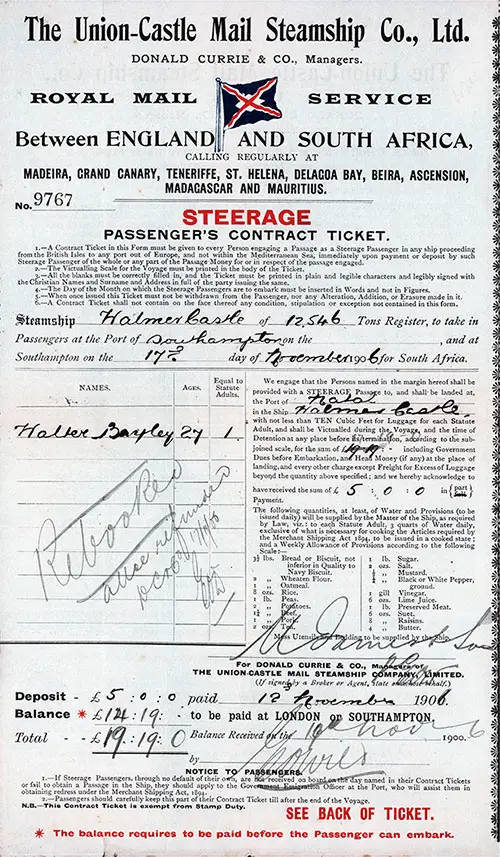 The Union-Castle Mail Steamship Co., Ltd.
DONALD CURRIE & CO., Managers.
ROYAL MAIL SERVICE
Between ENGLAND AND SOUTH AFRICA,
CALLING REGULARLY AT
MADEIRA, GRAND CANARY, TENERIFFE, ST. HELENA, DELACOA BAY, BEIRA, ASCENSION,
MADAGASCAR AND MAURITIUS.
No. 9767
STEERAGE
PASSENGER'S CONTRACT TICKET.
1.—A Contract Ticket in this Form must be given to every Person engaging a Passage as a Steerage Passenger in any ship proceeding
from the British Isles to any port out of Europe, and not within the Mediterranean Sea, immediately upon payment or deposit by such
Steerage Passenger of the whole or any part of the Passage Money for or in respect of the passage engaged.
2.—The Victualling Scale for the Voyage must be printed in the body of the Ticket.
3.—All the blanks must be correctly filled in, and the Ticket must be printed in plain and legible characters and legibly signed with
the Christian Names and Surname and Address in full of the party issuing the same.
4.—The Day of the Month on which the Steerage Passengers are to embark must be inserted in Words and not in Figures.
5.—When once issued this Ticket must not be withdrawn from the Passenger, nor any Alteration, Addition, or Erasure made in it.
6.—A Contract Ticket shall not contain on the face thereof any condition, stipulation or exception not contained in this form.
Steamship Halmer Castle of 12,546 Tons Register, to take in
Passengers at the Port of Southampton on the , and at
Southampton on the 17th day of November 1906 for South Africa.
NAMES. AGES. Equal to Statute Adults.
Walter Bayley 27 1
Rebooked
We engage that the Persons named in the margin hereof shall be
provided with a STEERAGE Passage to, and shall be landed at,
the Port of Natal
in the Ship Halmer Castle,
with not less than TEN Cubic Feet for Luggage for each Statute
Adult, and shall be Victualled during the Voyage, and the time of
Detention at any place before its termination, according to the sub-
joined scale, for the sum of £19.19.- including Government
Dues before Embarkation, and Head Money (if any) at the place of
landing, and every other charge except Freight for Excess of Luggage
beyond the quantity above specified; and we hereby acknowledge to
have received the sum of £ 5 : 0 : 0 in {part/full}
Payment.
The following quantities, at least, of Water and Provisions (to be
issued daily) will be supplied by the Master of the Ship, as required
by Law, viz.: to each Statute Adult, 3 quarts of Water daily,
exclusive of what is necessary for cooking the Articles required by
the Merchant Shipping Act 1894, to be issued in a cooked state;
and a Weekly Allowance of Provisions according to the following
Scale:—
3½ lbs. Bread or Biscuit, not inferior in Quality to Navy Biscuit.
2 " Wheaten Flour.
1 " Oatmeal.
8 ozs. Rice.
1 lb. Peas.
2 " Potatoes.
1¼ " Beef.
1 " Pork.
2 ozs. Tea.
1 lb. Sugar.
2 ozs. Salt.
½ " Mustard.
¼ " Black or White Pepper, ground.
1 gill Vinegar.
6 ozs. Lime Juice.
1 lb. Preserved Meat.
6 ozs. Suet.
8 " Raisins.
4 " Butter.
Mess Utensils and Bedding to be supplied by the Ship.
For DONALD CURRIE & CO., Managers of
THE UNION-CASTLE MAIL STEAMSHIP COMPANY, LIMITED.
(If signed by a Broker or Agent, state on whose behalf.)
Deposit - £5 : 0 : 0 paid 12 November 1906.
Balance * £14 : 19 : - to be paid at LONDON or SOUTHAMPTON.
Total - £19 : 19 : 0 Balance Received on the 16th Nov 1906
by
NOTICE TO PASSENGERS.
1.—If Steerage Passengers, through no default of their own, are not received on board on the day named in their Contract Tickets
or fail to obtain a Passage in the Ship, they should apply to the Government Emigration Officer at the Port, who will assist them in
obtaining redress under the Merchant Shipping Act, 1894.
2.—Passengers should carefully keep this part of their Contract Ticket till after the end of the Voyage.
N.B.—This Contract Ticket is exempt from Stamp Duty.
SEE BACK OF TICKET.
* The balance requires to be paid before the Passenger can embark.